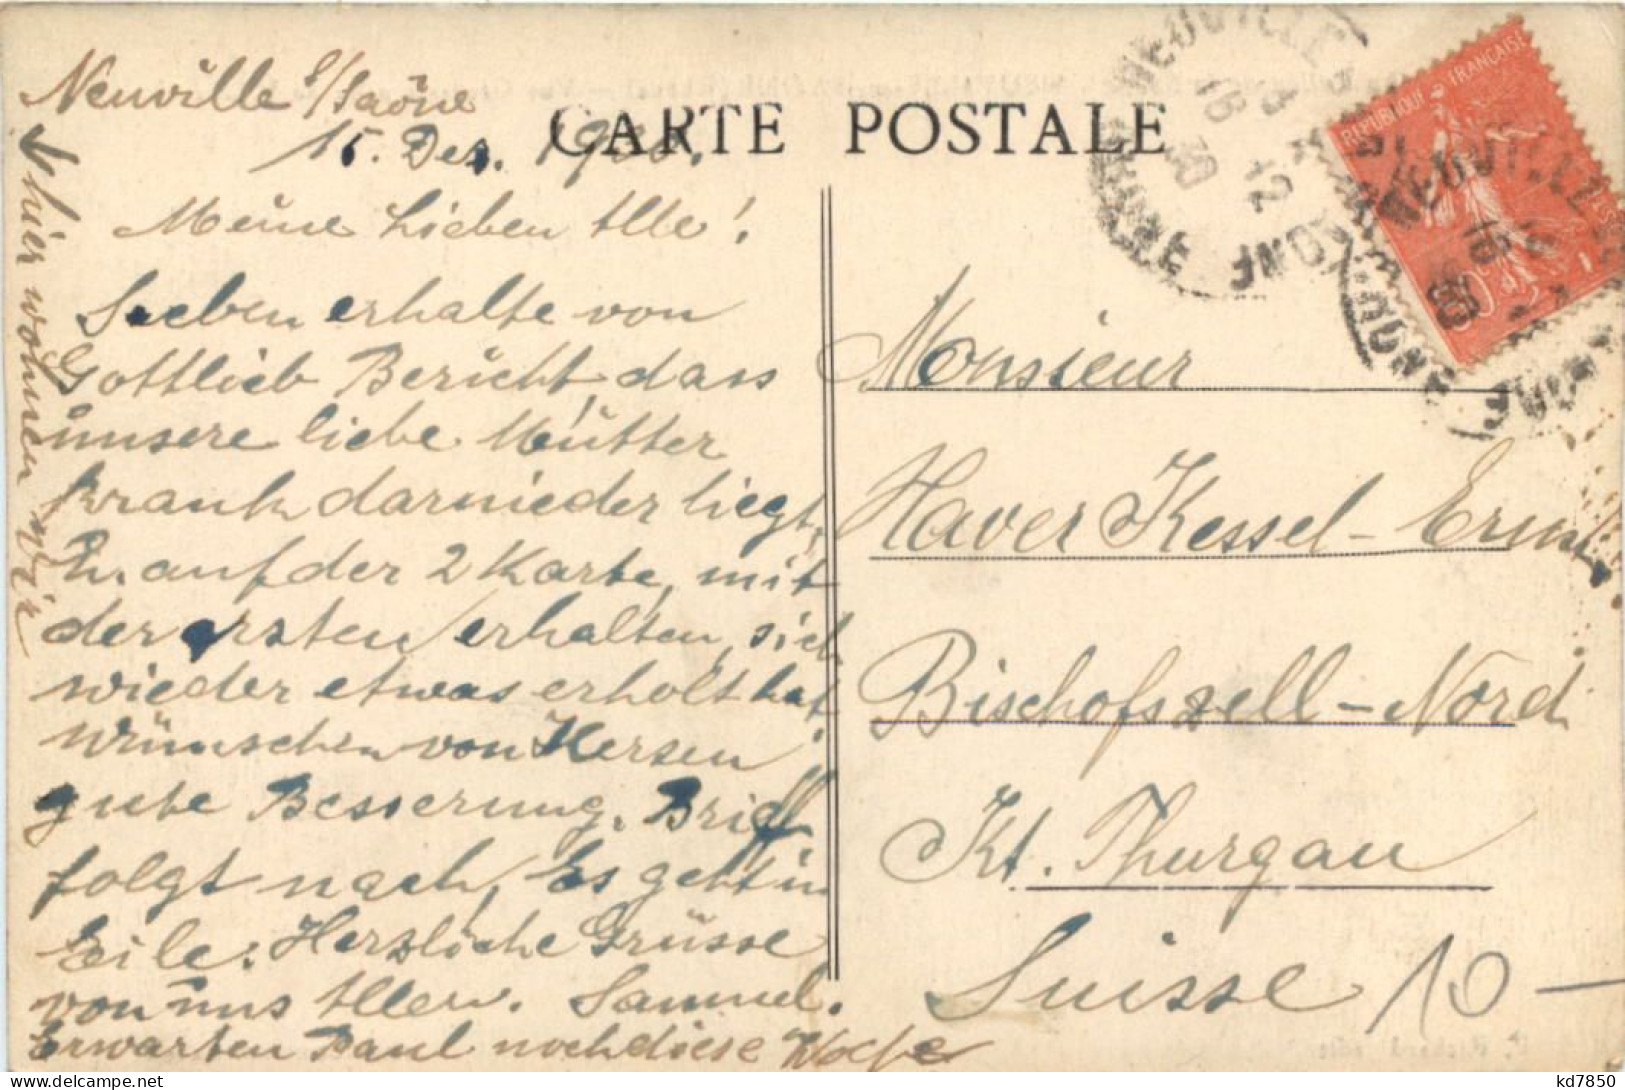 CARTE POSTALE
Neuville s/Saône
15. Dez. 1930.
Meine Lieben Alle!
Soeben erhalte von
Gottlieb Bericht, dass
unsere liebe Mutter
krank darnieder liegt,
auf der 2 Karte, mit
der ersten erhalten, sich
wieder etwas erholt hat.
wünschen von Herzen
gute Besserung. Brief
folgt nach, Es geht in
Eile. Herzliche Grüsse
von uns Allen. Samuel.
Erwarten Paul noch diese Woche
hier wohnen wir
Monsieur
Xaver Kessel-
Bischofszell-Nord
Kt. Thurgau
Suisse
10 -
REPUBLIQUE FRANÇAISE
NEUVILLE
16
12
30
RHONE
NEUVILLE
16
30
RHONE
kd7850